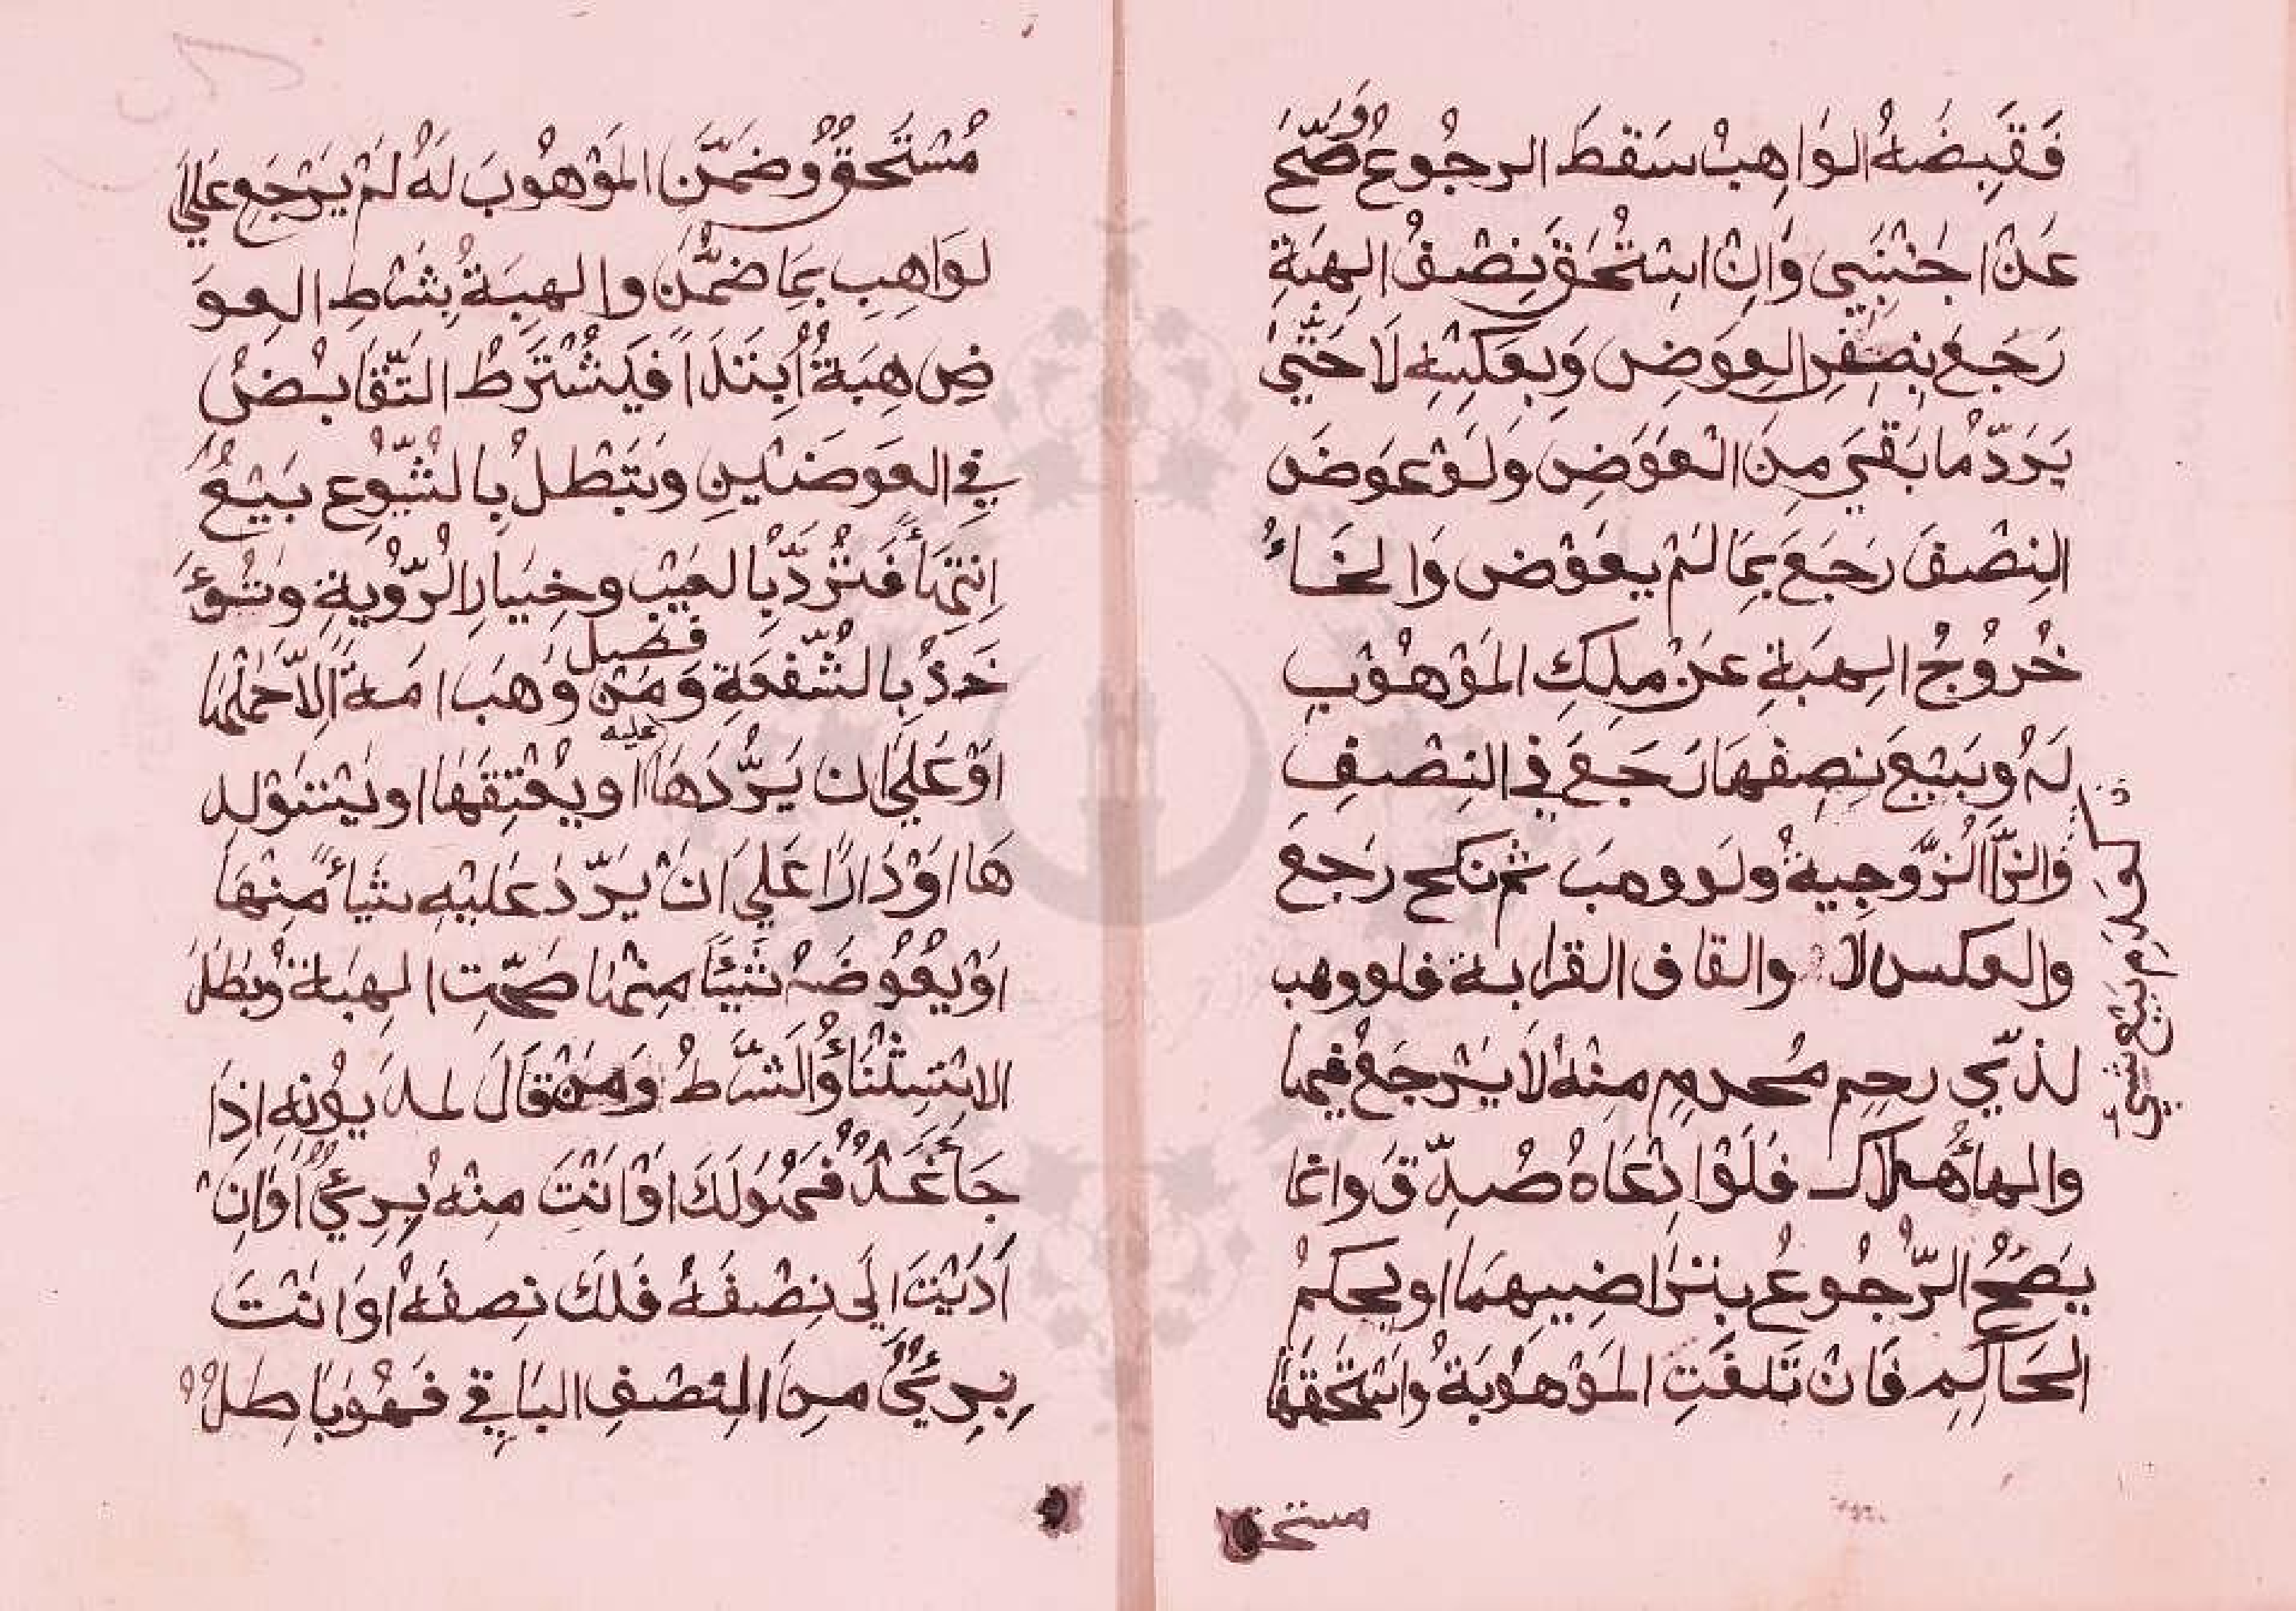 فَقَبِضَهُ الوَاهِبْ سَقَطَ الرجُوعُ وَصَحَّ
عَنْ اجْنَبِي وَاِنْ اسْتُحَقَ نِصْفُ الهِبَةِ
رَجَعَ بِنِصْفِ العِوَضِ وَبِعَكسِهِ لَا حَتّيٰ
يَرَدّ مُا بَقْيَ مِنَ الْعَوَضِ وَلَوْ عَوَضَ
النِصْفَ رَجَعَ بِمَا لَمْ يعَوْض وَالخَاءُ
خُرُوْجُ الهِبَةِ عَنْ مِلِكِ المَوْهُوْبِ
لَهُ وَبِبَيْعِ نِصِفِهَا رَجَعَ فِي النِصْفِ
كعدَمِ بَيْعِ شَيْءٍ
وَالزَّا الزَّوجِيةُ ولَو وهبَ ثم نكح رَجعَ
والعكس لا والقاف القرابة فلو وهب
لذيّ رحِم مُحرمٍ مِنْهُ لَا يَرْجَعُ فِيهَا
والهاءُ هلاك فَلَوْ ادِعَاهُ صُدِّقَ وانما
يَصَحُّ الرّجُوعُ بِتَرَاضِيهِمَا او بحكمُ
الحَاكِمِ فَاِنْ تَلَفَتِ المَوْهُوْبَةُ وَاسْتَحَقَهَا
مستحق
مُسْتَحَقٌ وضَمَّنَ المَوْهُوبَ لَهُ لَمْ يَرْجَعِ عَلَي
لوَاهِبِ بِمَا ضمَّنَ والهِبَةُ بِشَرْطِ العِوَ
ضِ هِبَةٌ اِبْتَدَاً فَيُشْتَرَطُ التَّقَابُضُ
فِي العَوَضَيْنِ وَتَبْطلُ بِالشّيُوعِ بَيْعٌ
اِنْتِهَاً فَتُرَدُّ بِالعَيْبِ وخِيَارِ الرُّوْيةِ وَتُوْ
خَذُ بِالشُّفْعَةِ فصل وَمَنْ وَهَبَ امَةً اِلَّا حَمْلَهَا
اَوْ عَلَيٰ ان يَرُّدَهَا عليه او يُعْتِقَهَا او يَسْتَوْلِد
هَا اوْ دَارًا عَلَي اَنْ يَرّدَ عَلَيْهِ شَيْأً مِنْهَا
اَوْ يُعَوِّضَهُ شَيْئًا مِنْهَا صَحّتِ الهِبَةُ وَبَطَلَ
الاسْتِثْنَاءُ وَالشَّرْطُ وَمَنْ قَالَ لمديُونِهِ اِذَا
جَاءَ غَدٌ فَهُوَ لَكَ اَوْ اَنْتَ مِنْهُ بِرِيٌ اَوْ اِنْ
اَدَيْتَ اِلَيَ نِصْفَهُ فَلَكَ نِصفُهُ اَوْ اَنْتَ
بِرِيٌ مِنَ النِصْفِ البَاقِي فَهُوَ بَاطِلٌ